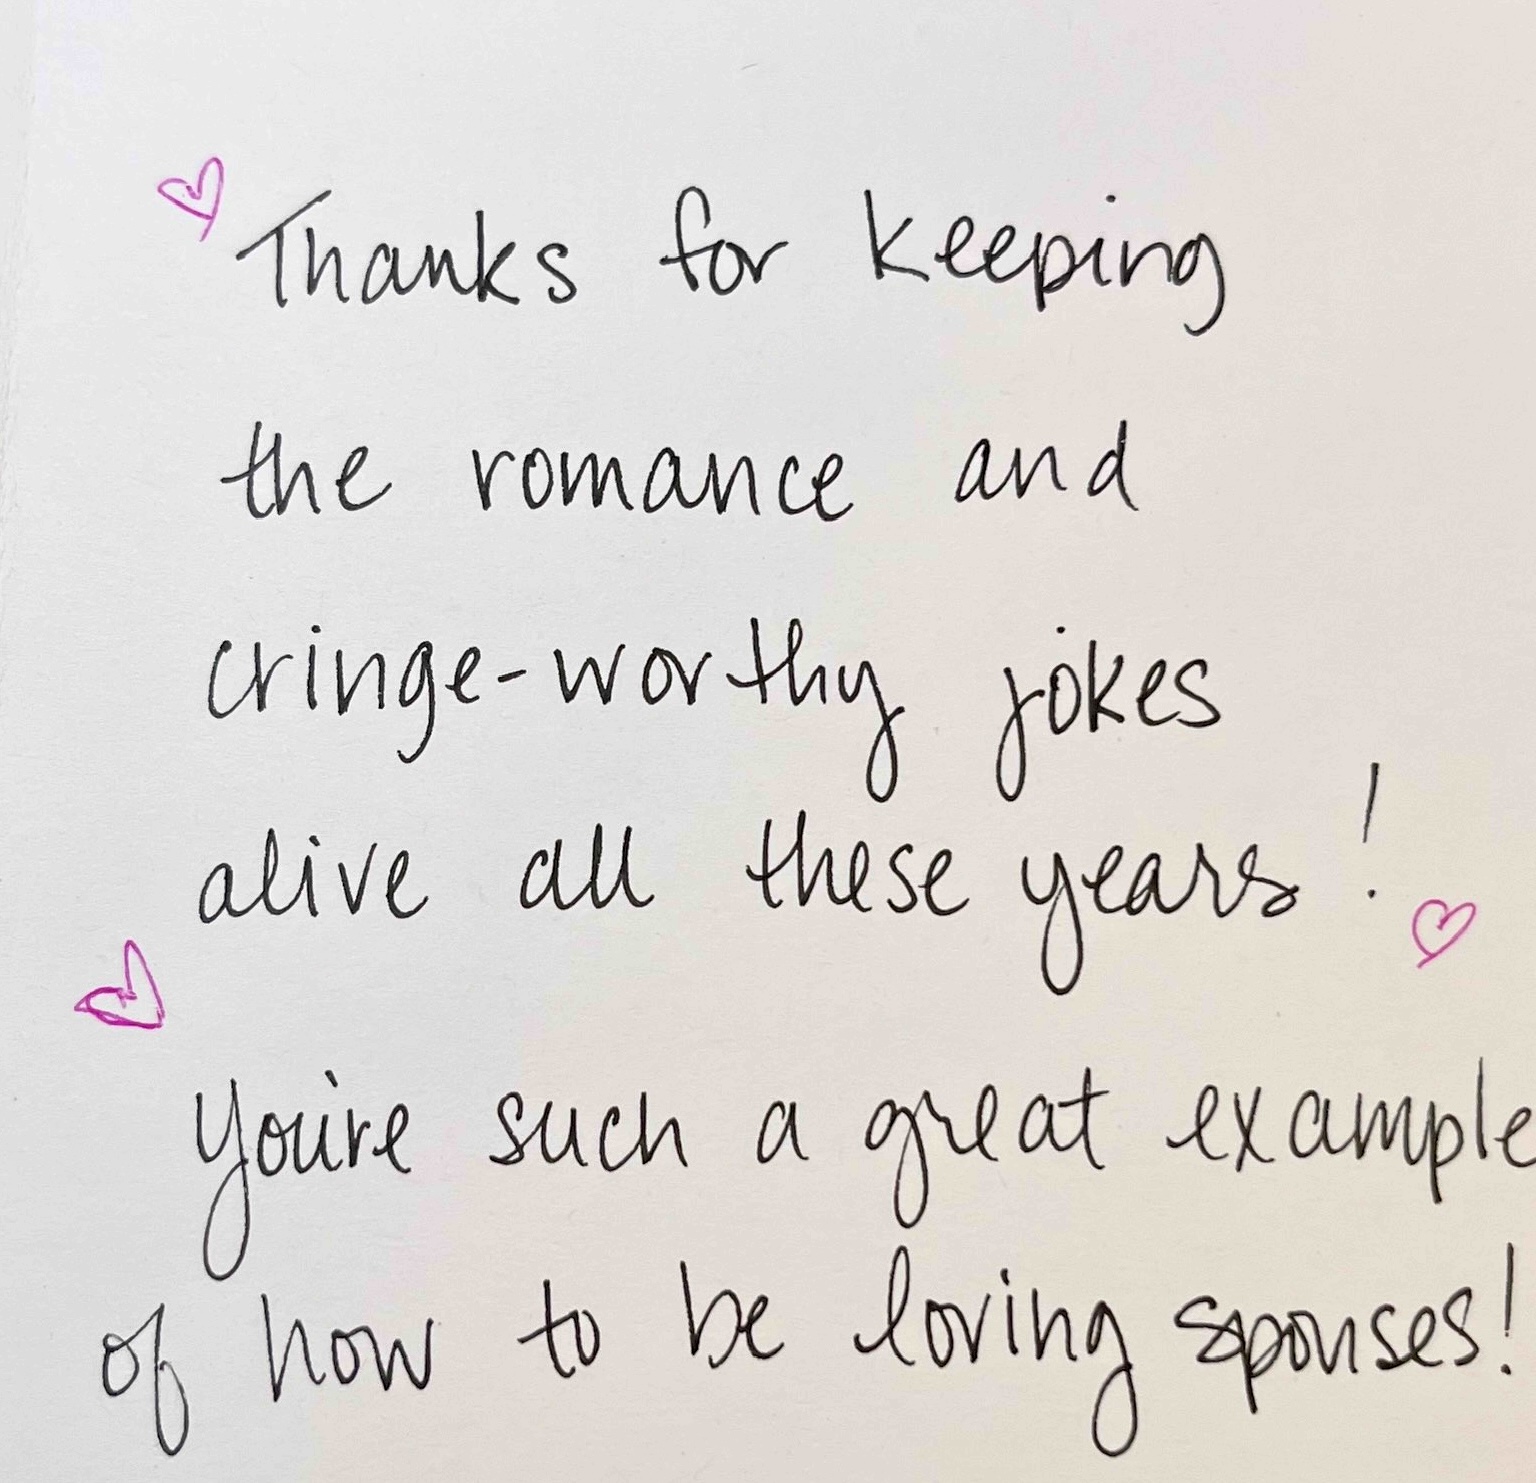 Thanks for keeping
the romance and
cringe-worthy jokes
alive all these years!
You're such a great example
of how to be loving spouses!